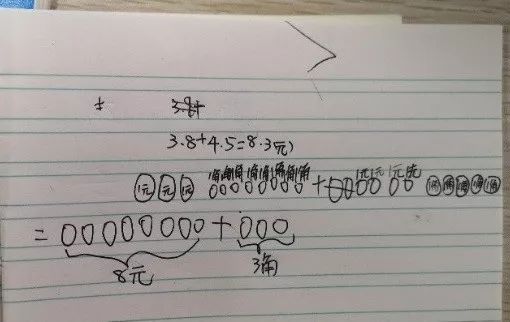 3.8+
3.8+4.5=8.3(元)
1元 1元 1元 1角 1角 1角 1角 1角 1角 1角 1角 + 1元 1元 1元 1元 1角 1角 1角 1角 1角
= + 
8元 3角